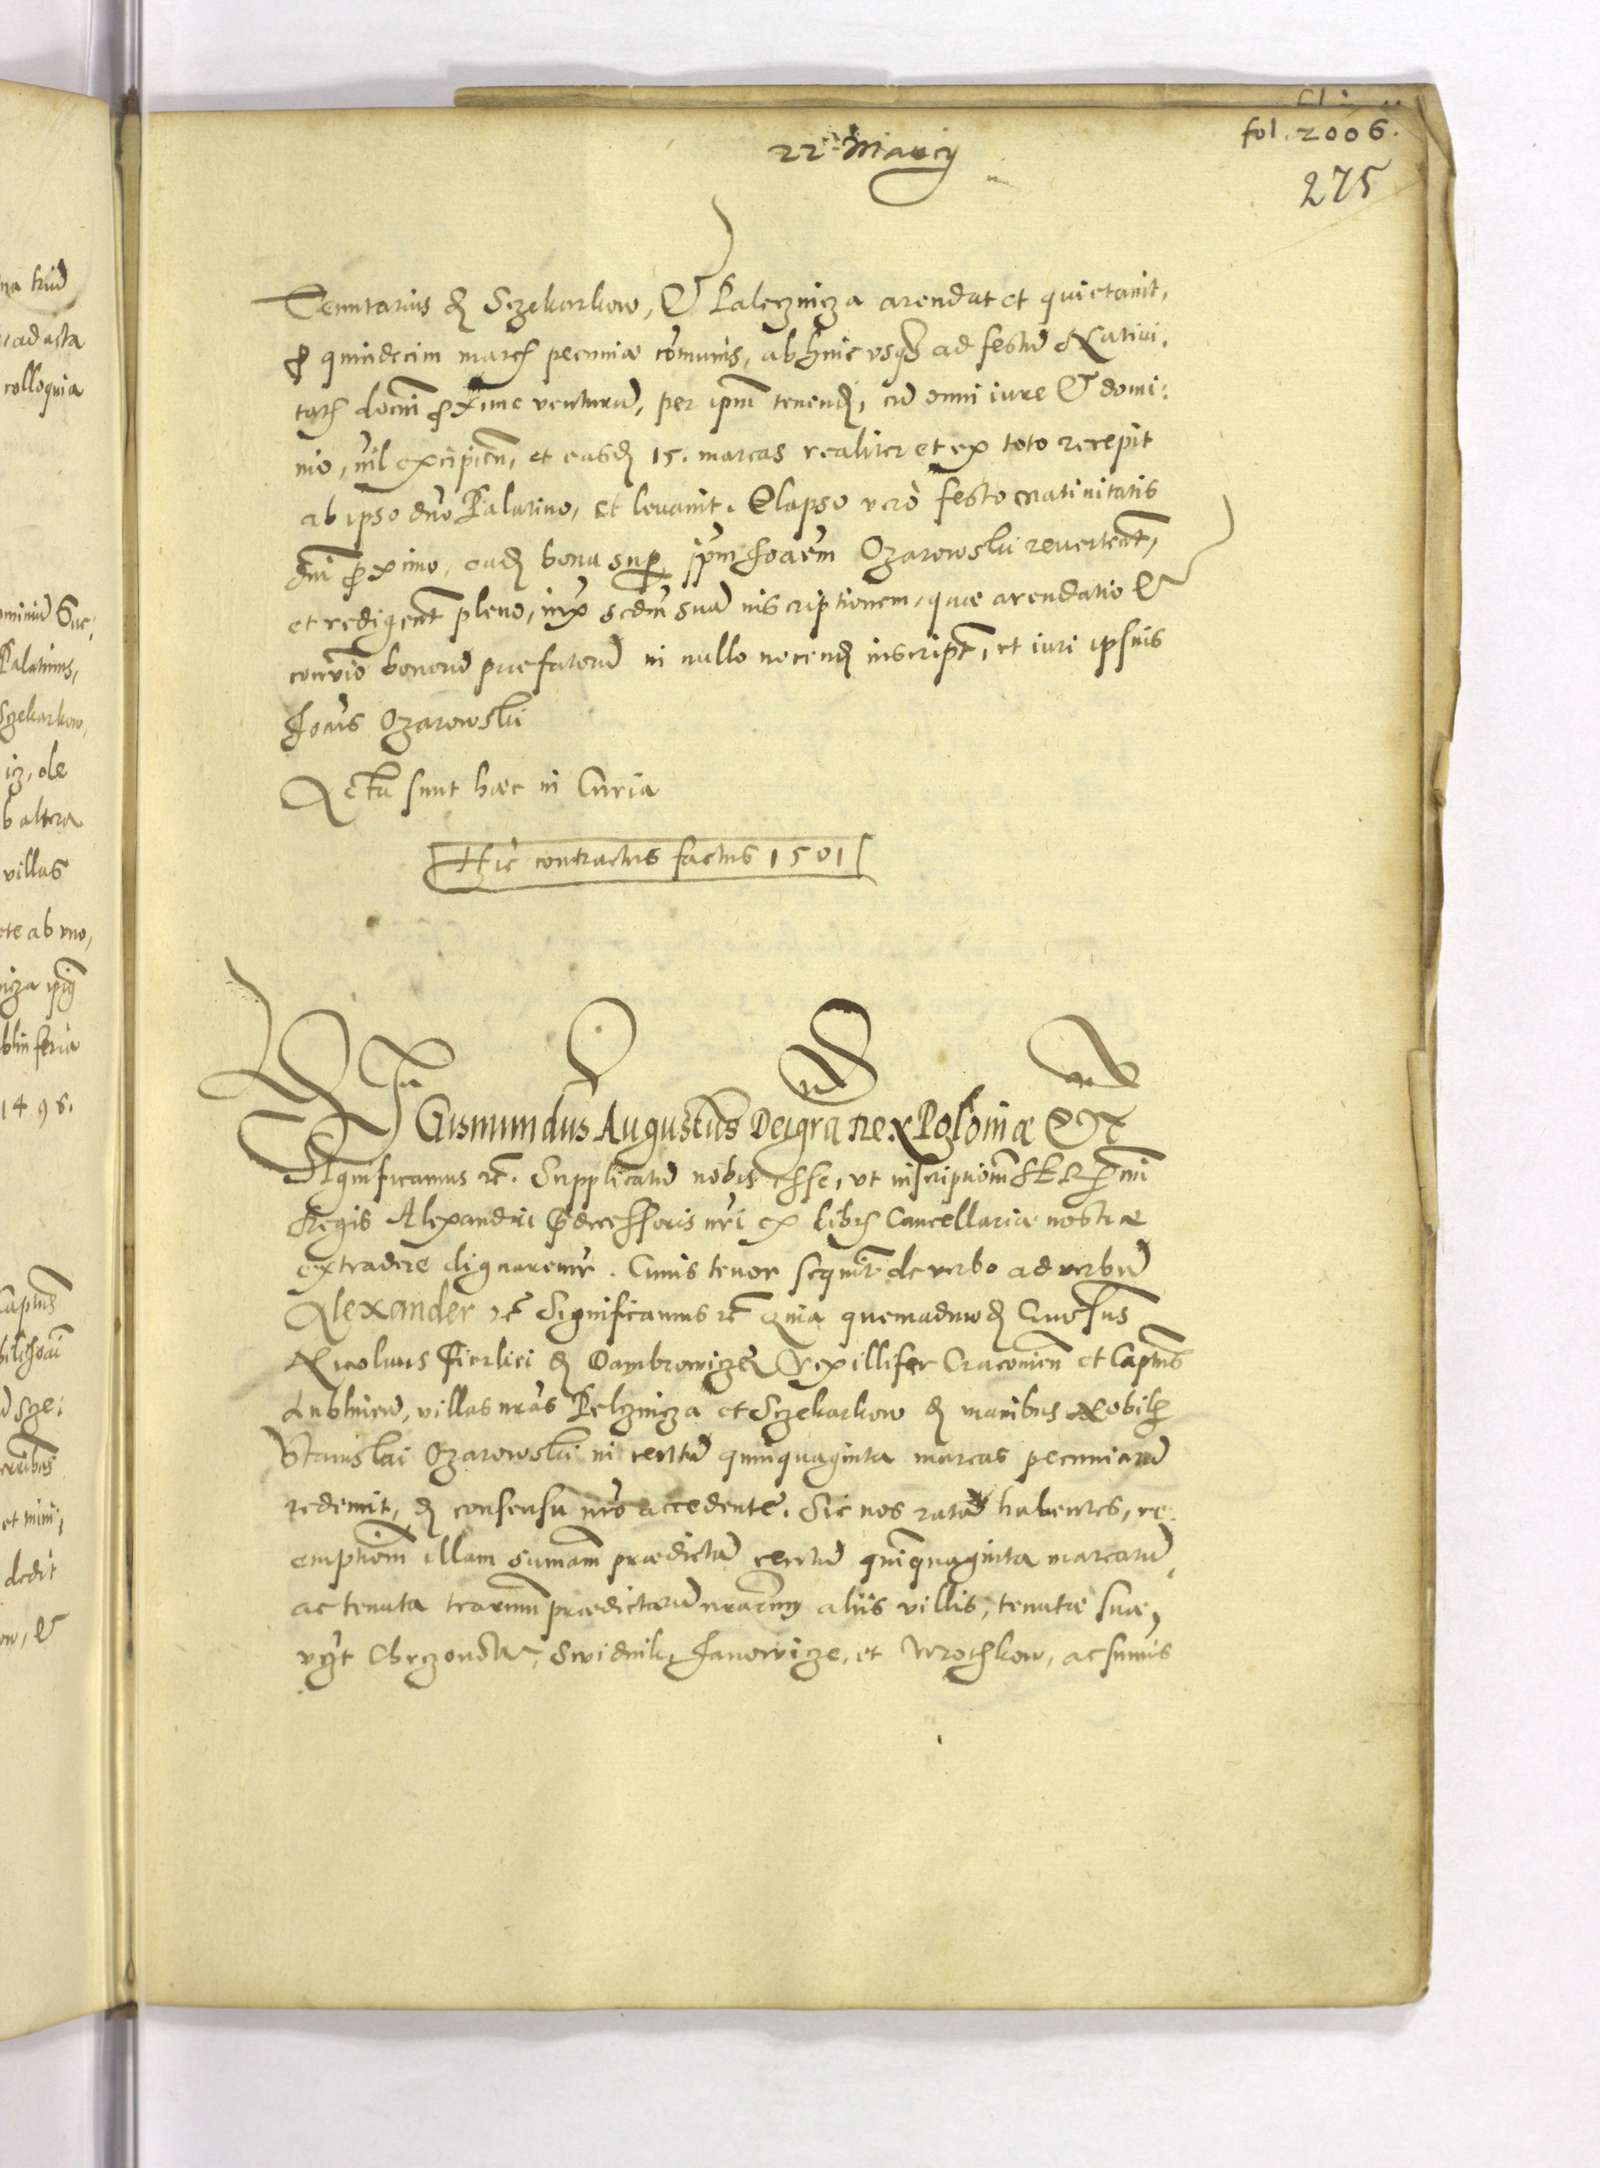 fol. 2006.
22 Marcy
275
Tenutarius de Sczekarkow, Et Palecznicza arendat et quietavit,
p quindecim marc pecuniæ comunis, abhinc vsq ad festu Nativi,
tatis domni pxime venturu, per ipm tenend, cu omni iure Et domi:
nio, nil excipien, et easd 15. marcas realiter et ex toto recepit
ab ipso dno Palatino, et levavit. Elapso vero festo Nativitatis
dni pximo, ead bona sup ipm Joaem Ozarowski revertent,
et redigent pleno, iux scdm sua inscriptionem, quæ arendatio Et
convio bonoru præfatoru in nullo nocend inscript, et iuri ipsius
Joais Ozarowski
Acta sunt hæc in Curia
Hic contractus factus 1501
SIGismundus Augustus Dei gra Rex Poloniæ Etc
Significamus rc. Supplicatu nobis esse, vt inscriptiom
Regis Alexandri pdecessoris nri ex libris Cancellariæ nostræ
extradere dignaremur. Cuius tenor sequit de verbo ad verbu
Alexander rc Significamus rc Quia quemadmod Gnosus
Nicolaus Firlei de Dambrowicza Vexillifer Cracovien et Captus
Lublinen, villas nras Pelcznicza et Sczekarkow de manibus Nobilis
Stanislai Ozarowski in centu quinquaginta marcas pecuniaru
redemit, de consensu nro accedente. Sic nos rata habentes, re:
emptiom illam sumam prædicta centu quinquaginta marcaru,
ac tenuta villarum prædictaru nrarum aliis villis, tenutæ suæ,
vczt Chrzonow, Swidnik, Janowicze, et Wrothkow, ac sumis